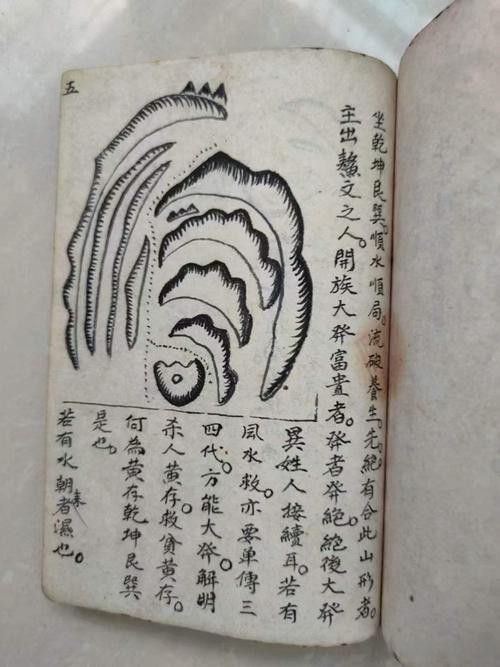 坐乾坤艮巽。順水順局。流破養生。先絕。有合此山形者。
主出鰲文之人。開族大發富貴者。發者發絕。絕後大發
異姓人接續耳。若有
風水救。亦要單傳三
四代。方能大發。解明
杀人黄存。救貧黄存。
何為黄存乾坤艮巽
是也。
若有水朝來者濕也。
五